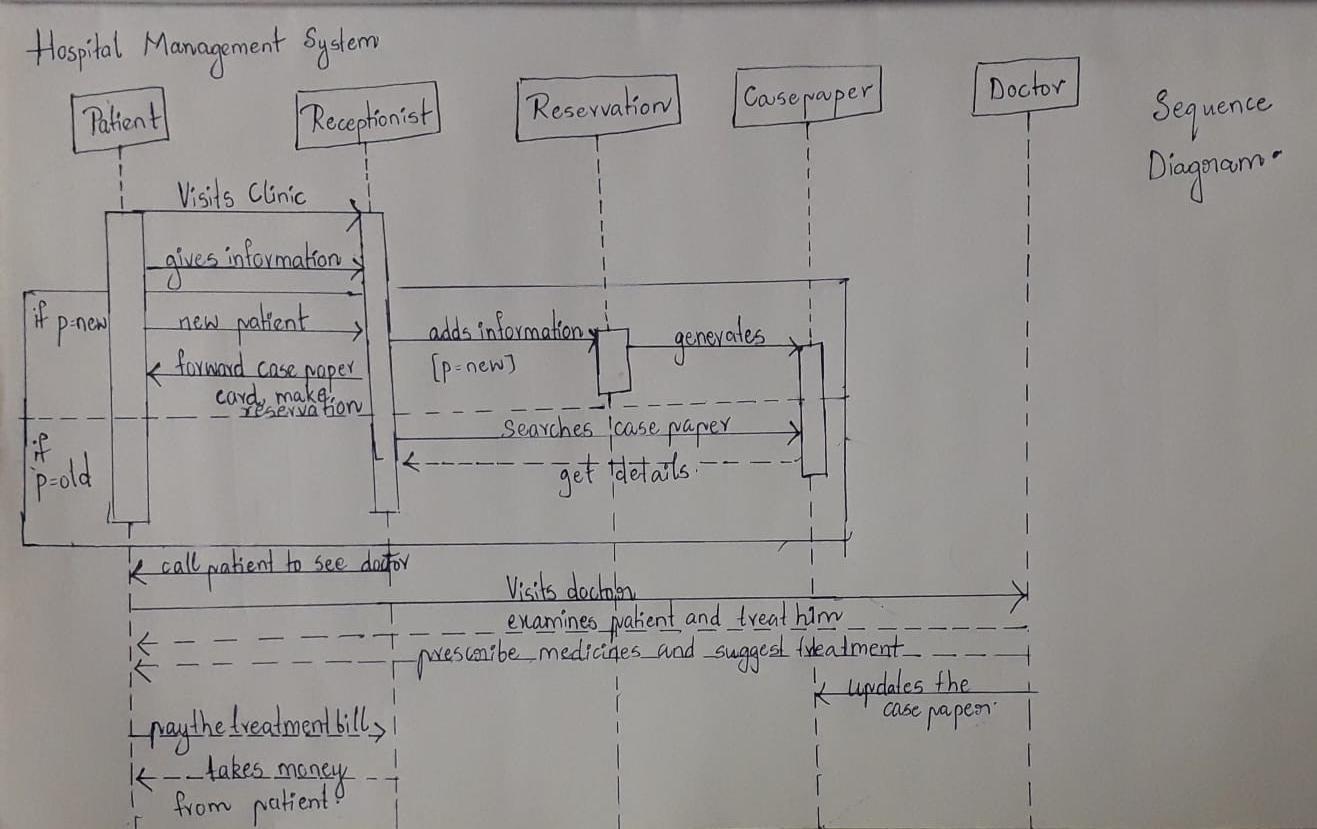 Hospital Management System
Patient
Receptionist
Reservation
Casepaper
Doctor
Sequence
Diagram
Visits Clinic
gives information
if p=new
new patient
adds information
[p=new]
generates
forward case paper
card, make
reservation
if
p=old
Searches case paper
get details.
call patient to see doctor
Visits doctor
examines patient and treat him
prescribe medicines and suggest treatment
updates the
case paper
pay the treatment bill
takes money
from patient